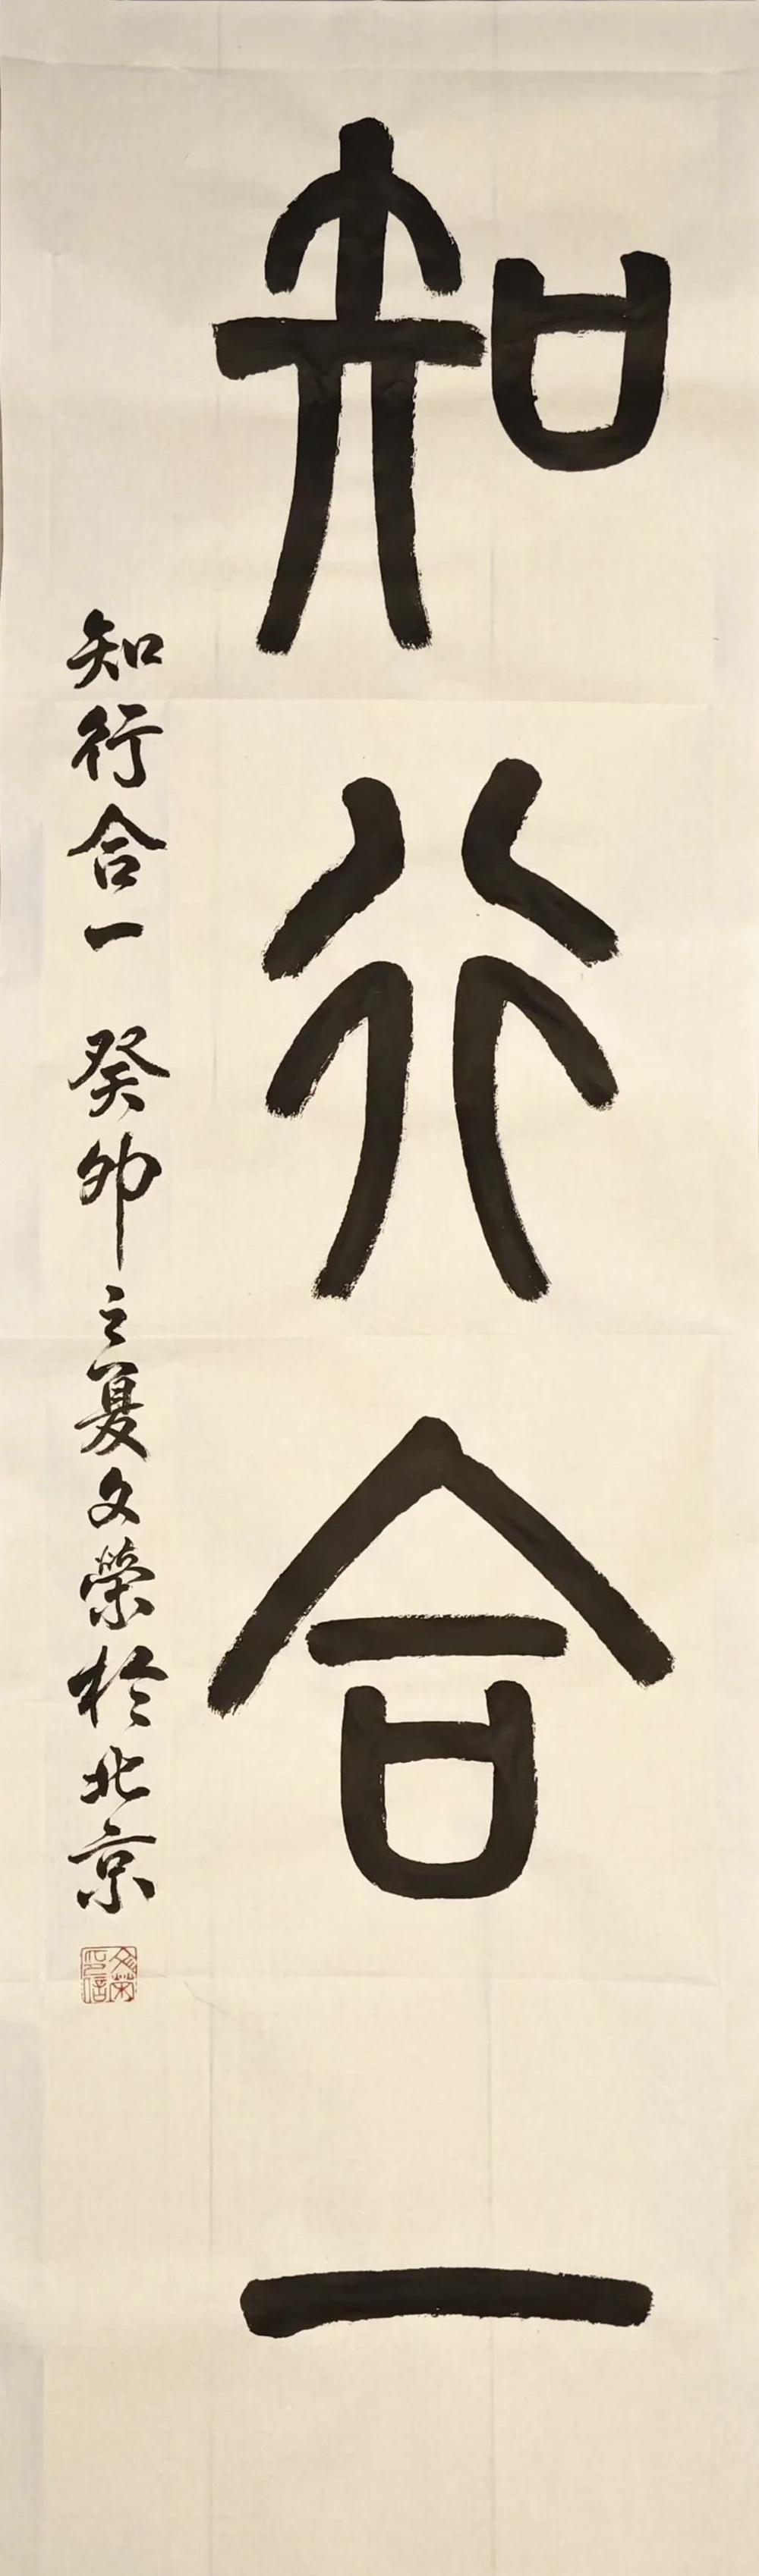 知行合一
知行合一 癸卯之夏文榮於北京
文榮印信